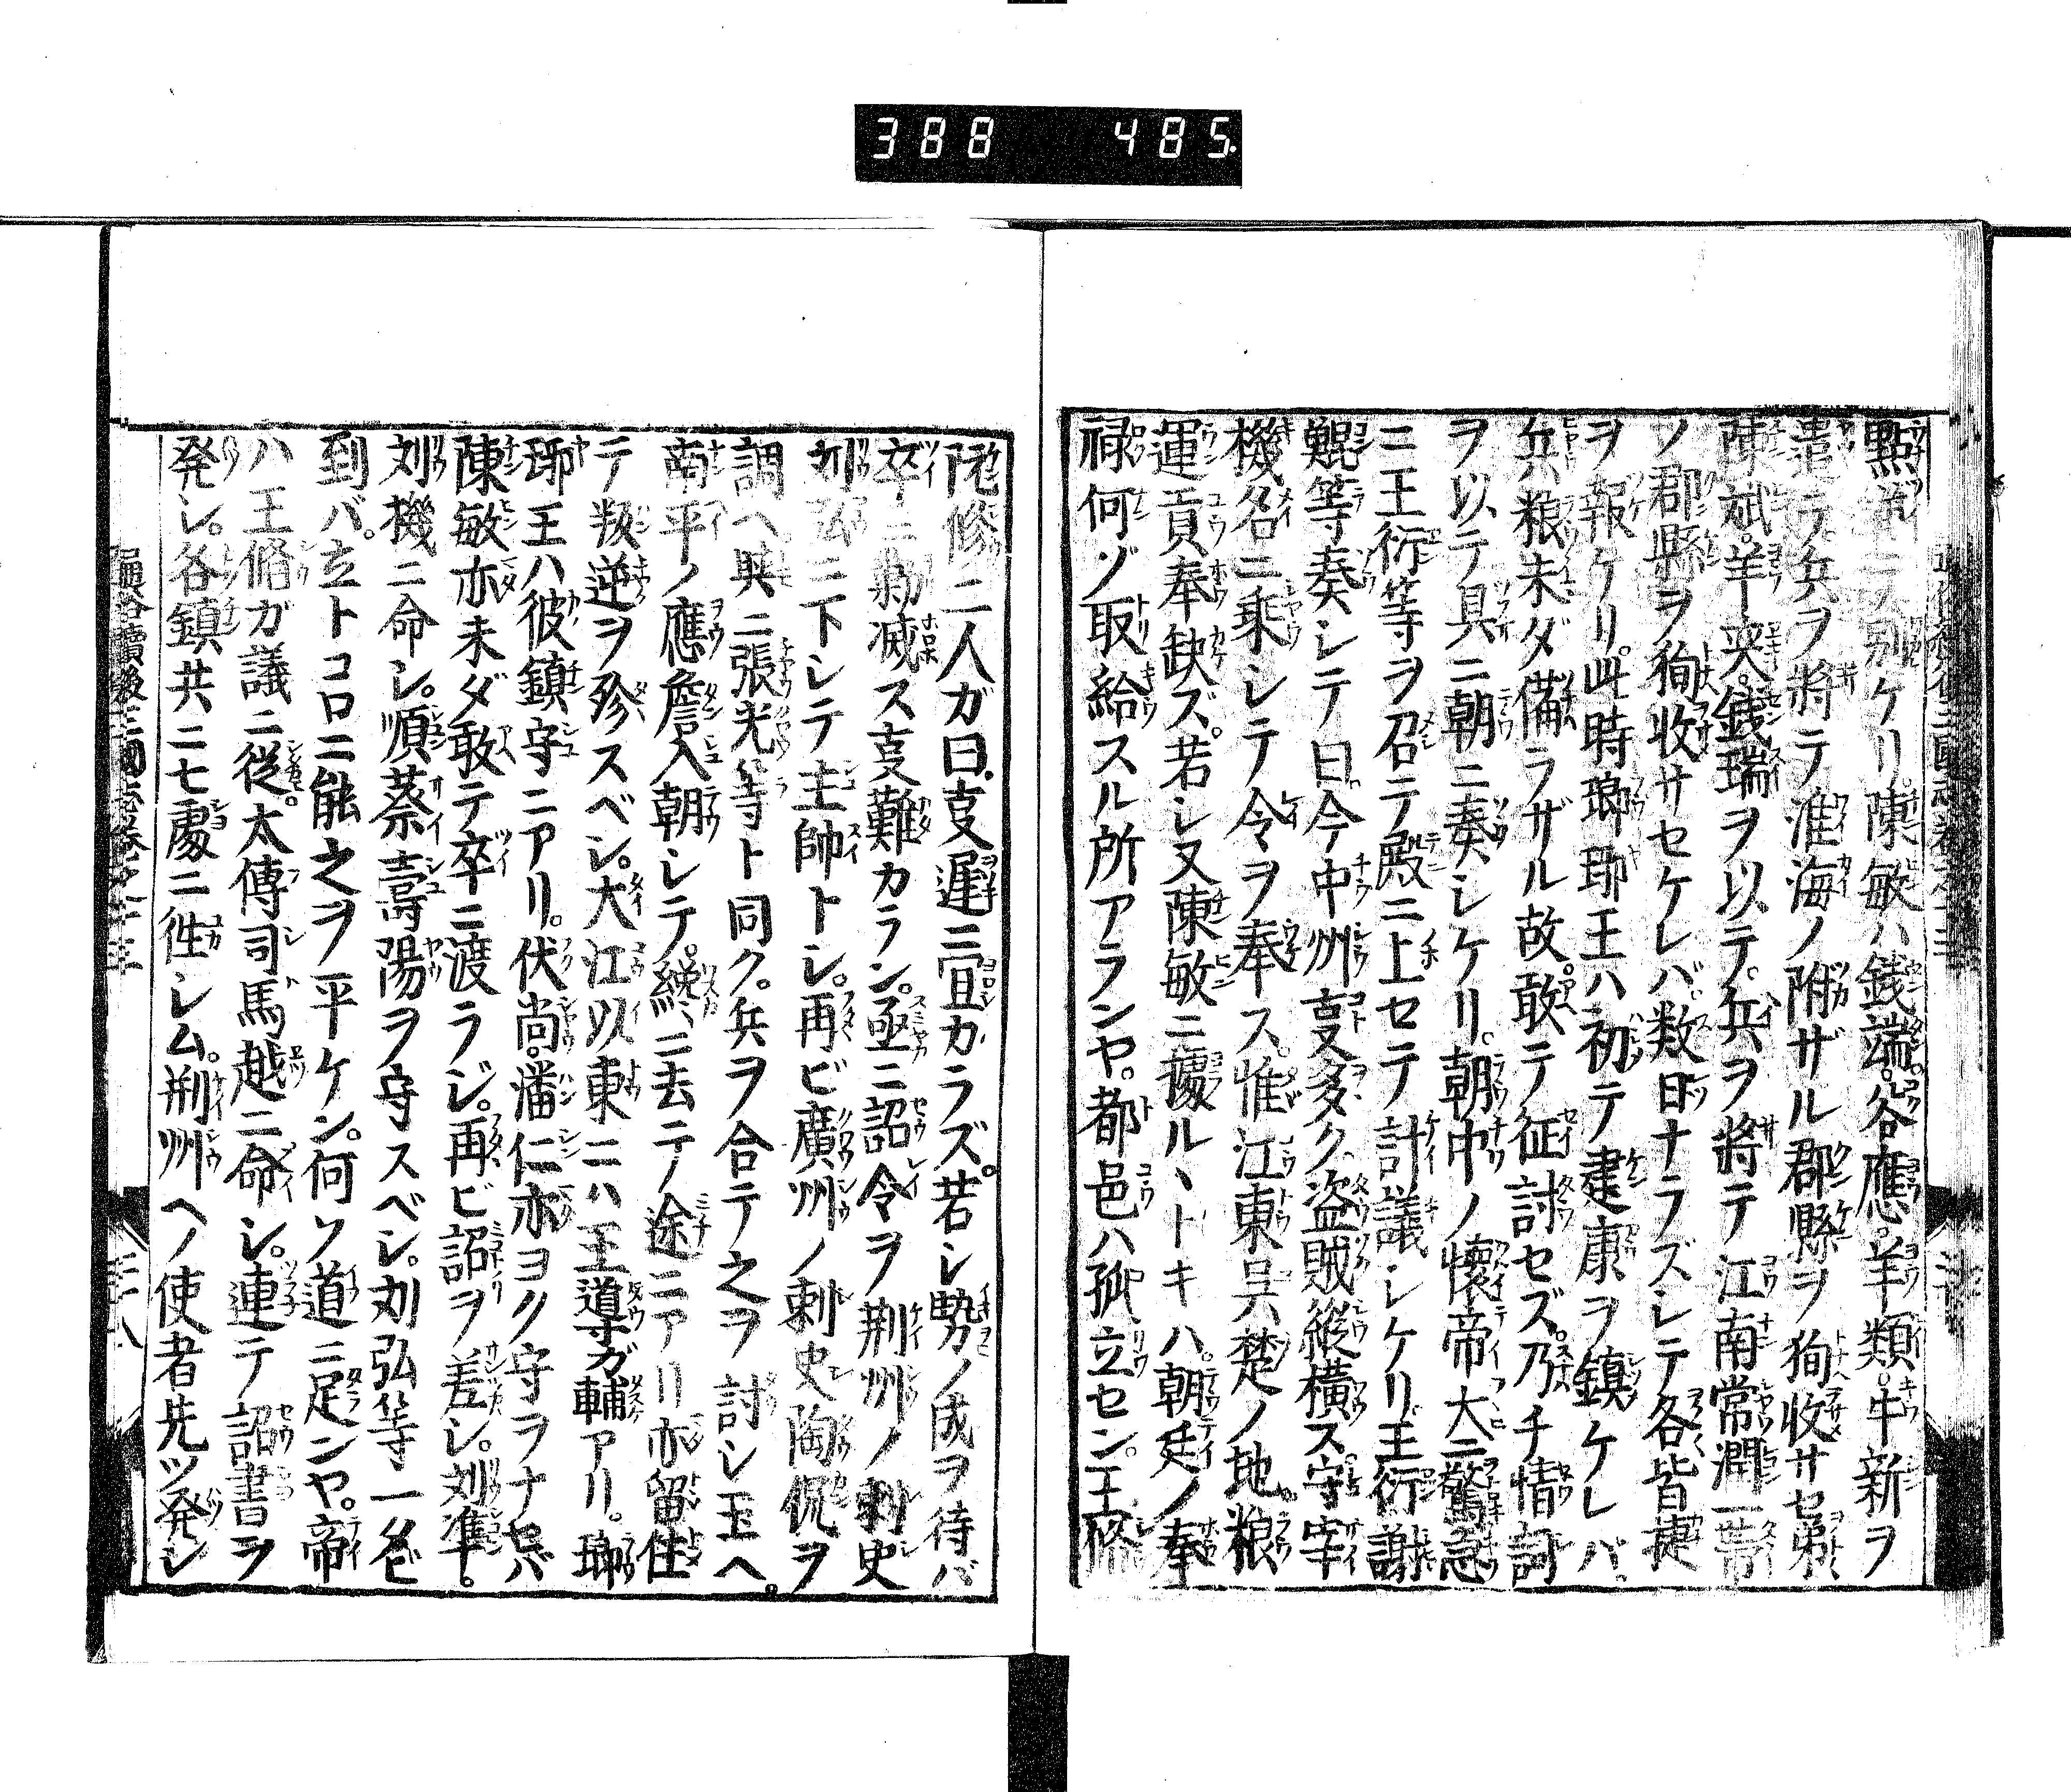 388 485.
點シテ別ケリ。陳敏ハ銭端。谷應。羊類。牛新ヲ
遣ラ。兵ヲ將テ淮海ノ附ザル郡縣ヲ狥收サセ。弟
陳斌。羊奕。銭瑞ヲ以テ。兵ヲ將テ江南常潤一帯
ノ郡縣ヲ狥收サセケレバ。数日ナラズシテ各皆捷
ヲ報ケリ。此時瑯耶王ハ初テ建康ヲ鎮ケレバ。
兵粮未ダ備ラザル故。敢テ征討セズ。乃チ情詞
ヲ以テ具ニ朝ニ奏シケリ。朝中ノ懷帝大ニ驚。急
ニ王衍等ヲ召テ殿ニ上セテ計議シケリ。王衍謝
鯤等奏シテ曰。今中州叓多ク。盗賊縱横ス。守宰
機名ニ乗シテ令ヲ奉ス。惟江東呉楚ノ地。粮
運貢奉缺ズ。若シ又陳敏ニ攘ルヽトキハ。朝廷ノ奉
禄何ゾ取給スル所アランヤ。都邑ハ孤立セン。王脩
阮修二人ガ曰。叓遲ニ宜カラズ。若シ勢ノ成ヲ待バ
卒ニ勦滅ス叓難カラン。亟ニ詔令ヲ荆州ノ刺史
刘弘ニ下シテ主帥トシ。再ビ廣州ノ刺史陶侃ヲ
調ヘ。與ニ張光等ト同ク。兵ヲ合テ之ヲ討シ玉ヘ。
南平ノ應詹入朝シテ。纔ニ去テ途ニアリ亦留住
テ叛逆ヲ殄スベシ。大江以東ニハ王導ガ輔アリ。瑯
耶王ハ彼鎮守ニアリ。伏尚。潘仁亦ヨク守ヲナセバ
陳敏亦未ダ敢テ卒ニ渡ラジ。再ビ詔ヲ差シ。刘準。
刘機ニ命シ。順蔡壽陽ヲ守スベシ。刘弘等一タビ
到バ。立トコロニ能之ヲ平ケン。何ソ道ニ足ンヤ。帝
ハ王脩ガ議ニ從。太傅司馬越ニ命シ。連テ詔書ヲ
発シ。各鎮共ニ七處ニ徃シム。荆州ヘノ使者先ツ発シ